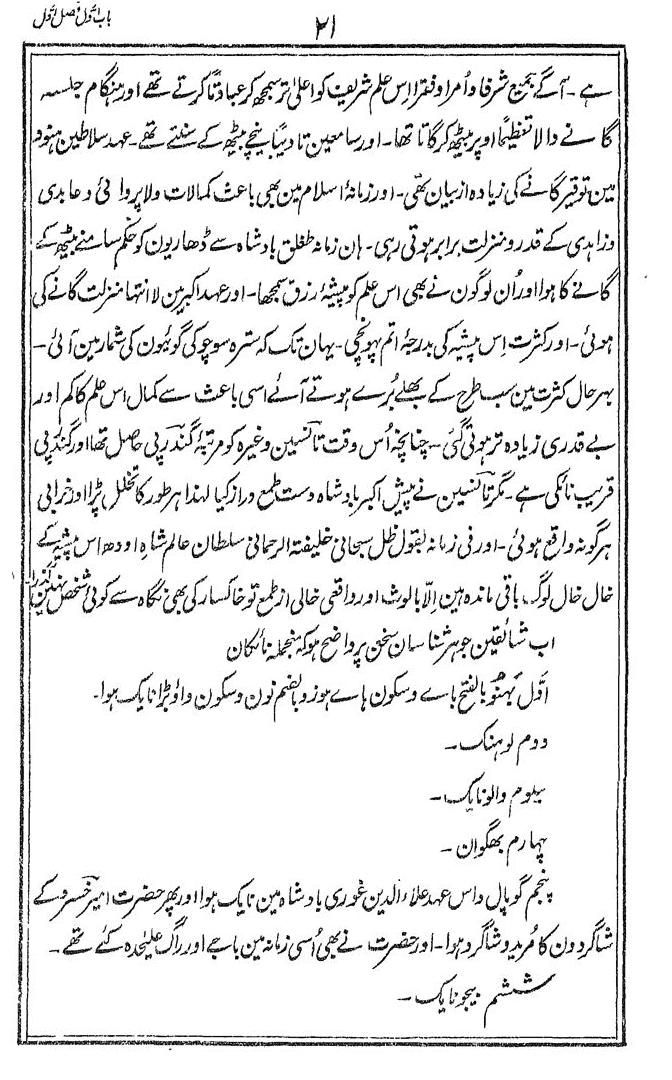 باب اوّل فصل اوّل
۲۱
ہے ۔ آگے بجمیع شرفا و اُمرا و فقرا اِس علم شریف کو اعلیٰ تر سمجھ کر عبادتاً کرتے تھے اور ہنگام جلسہ
گانے والا تعظیماً اوپر بیٹھ کر گاتا تھا ۔ اور سامعین تادیباً نیچے بیٹھ کے سنتے تھے ۔ عہد سلاطین ہنود
مین توقیر گانے کی زیادہ از بیان تھی ۔ اور زمانۂ اسلام مین بھی باعث کمالات و لاپروائی دعابدی
و زاہدی کے قدر و منزلت برابر ہوتی رہی ۔ ہان زمانہ طغلق بادشاہ سے ڈھاریون کو حکم سامنے بیٹھ کے
گانے کا ہوا اور اُن لوگون نے بھی اس علم کو پیشۂ رزق سمجھا ۔ اور عہد اکبر مین لا انتہا منزلت گانے کی
ہوئی ۔ اور کثرت اِس پیشہ کی بدرجۂ اتم پہونچی ۔ یہان تک کہ سترہ سو چوکی گوئیون کی شمار مین آئی ۔
بہر حال کثرت مین سب طرح کے بھلے بُرے ہوتے آئے اسی باعث سے کمال اس علم کا کم اور
بے قدری زیادہ تر ہوتی گئی ۔ چنانچہ اُس وقت تانسین وغیرہ کو مرتبۂ گندرپی حاصل تھا اور گندرپی
قریب نائکی ہے ۔ مگر تانسین نے پیش اکبر بادشاہ دست طمع دراز کیا لہذا ہر طور کا تخلل پڑا اور خرابی
ہر گونہ واقع ہوئی ۔ اور فی زمانہ بقول ظل سبحانی خلیفۃ الرحمانی سلطان عالم شاہ اودھ اس پیشہ کے
خال خال لوگ باقی ماندہ ہین اِلّا بالوث اور واقعی خالی از طمع تو خاکسار کی بھی نگاہ سے کوئی شخص نہین گذرا
اب شائقین جوہر شناسان سخن پر واضح ہو کہ منجملہ نائکان
اوّل بَہنُو بالفتح باے و سکون ہاے ہوز و بالضم نون و سکون واو بڑا نایک ہوا ۔
دوم لوہنک ۔
سیوم والو نایک ۔
چہارم بھگوان ۔
پنجم گوپال داس عہد علاء الدین غوری بادشاہ مین نایک ہوا اور پھر حضرت امیر خسرو کے
شاگردون کا مُرید و شاگرد ہوا ۔ اور حضرت نے بھی اُسی زمانہ مین باجے اور راگ علیحدہ کئے تھے ۔
ششم بیجو نایک ۔